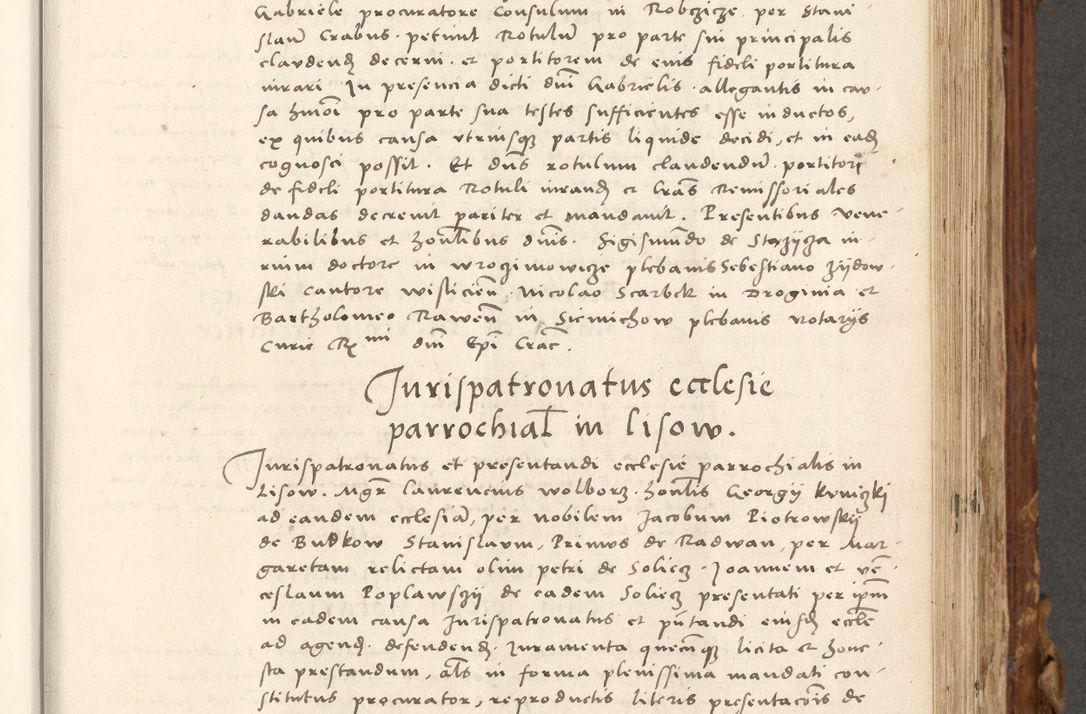 Gabriele procuratore Consulum in Robczicze per Stani-
slaū Crabus · petiuit Rotulū pro parte sui principalis
claudend decerni · et portitorem de eius fideli portitura
iurari · In presencia dicti dn̄i Gabrielis · allegantis in cau-
sa hmōi pro parte sua testes sufficientes esse inductos,
ex quibus causa vtriusqȝ partis liquide decidi, et in ead
cognosci possit · Et dn̄s rotulum claudendū · portitori
de fideli portitura Rotuli iurand et lrās Remissoriales
dandas decreuit pariter et mandauit · Presentibus vene-
rabilibus et honłibus dn̄is · Sigismūndo de Stężycza in-
rium doctore in wroczimowicze plebanis Sebestiano zijdow-
ski Cantore wislicien̄ · Nicolao Scarbek in Droginia et
Bartholomeo Rawen̄ in Siemichow plebanis notarijs
Curie Rmi dn̄i Ep̄i Crac̄ ·
Jurispatronatus ecclesie
parrochial in Lisow.
Jurispatronatus et presentandi ecclesie parrochialis in
Lisow · Mgr̄ laurencius wolborz · honłis Georgij kuniczki
ad eandem ecclesiā, per nobilem Jacobum Piotrowskij
de Budkow Stanislaum, Primus de Radwan, per Mar-
garetam relictam olim petri de Soliecz · Joannem et vēn-
ceslaum Poplawszij de eadem Soliecz presentati per ip̄m
in eadem causa Jurispatronatus et pn̄tandi eiusd eccłe
ad agend · defendend · Juramenta quecūnqȝ licita et hone-
sta prestandum, ałs in forma plenissima mandati con-
stitutus procurator, reproductis literis presentacōis de